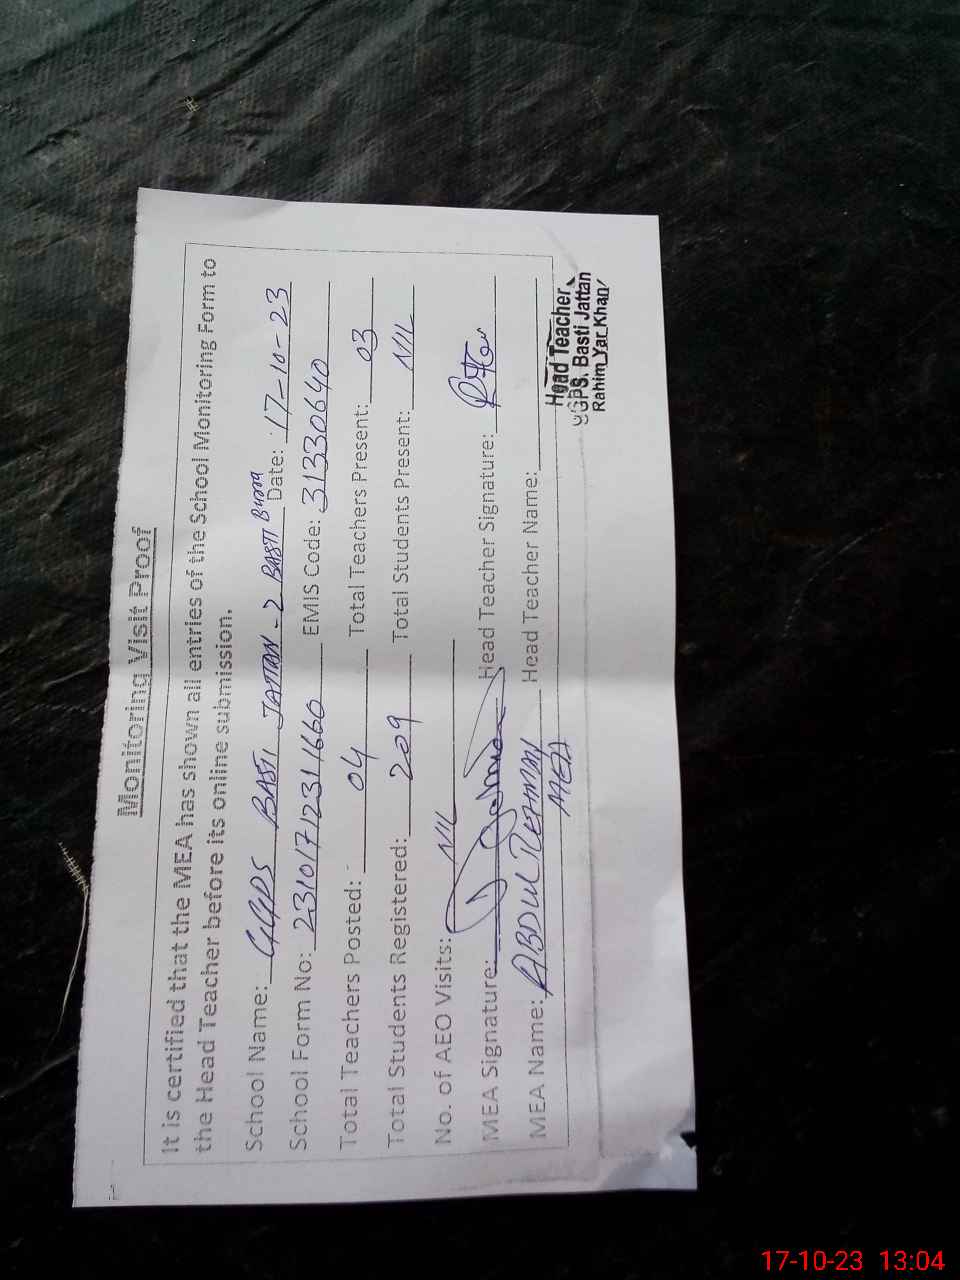 Monitoring Visit Proof
It is certified that the MEA has shown all entries of the School Monitoring Form to
the Head Teacher before its online submission.
School Name: GGPS BASTI JATTAN-2 BASTI Date: 17-10-23
School Form No: 23101712311660 EMIS Code: 31330640
Total Teachers Posted: 04 Total Teachers Present: 03
Total Students Registered: 209 Total Students Present: NIL
No. of AEO Visits: NIL
MEA Signature: Head Teacher Signature:
MEA Name: ABDUL REHMAN Head Teacher Name:
MEA
Head Teacher
GGPS. Basti Jattan
Rahim Yar Khan
17-10-23 13:04